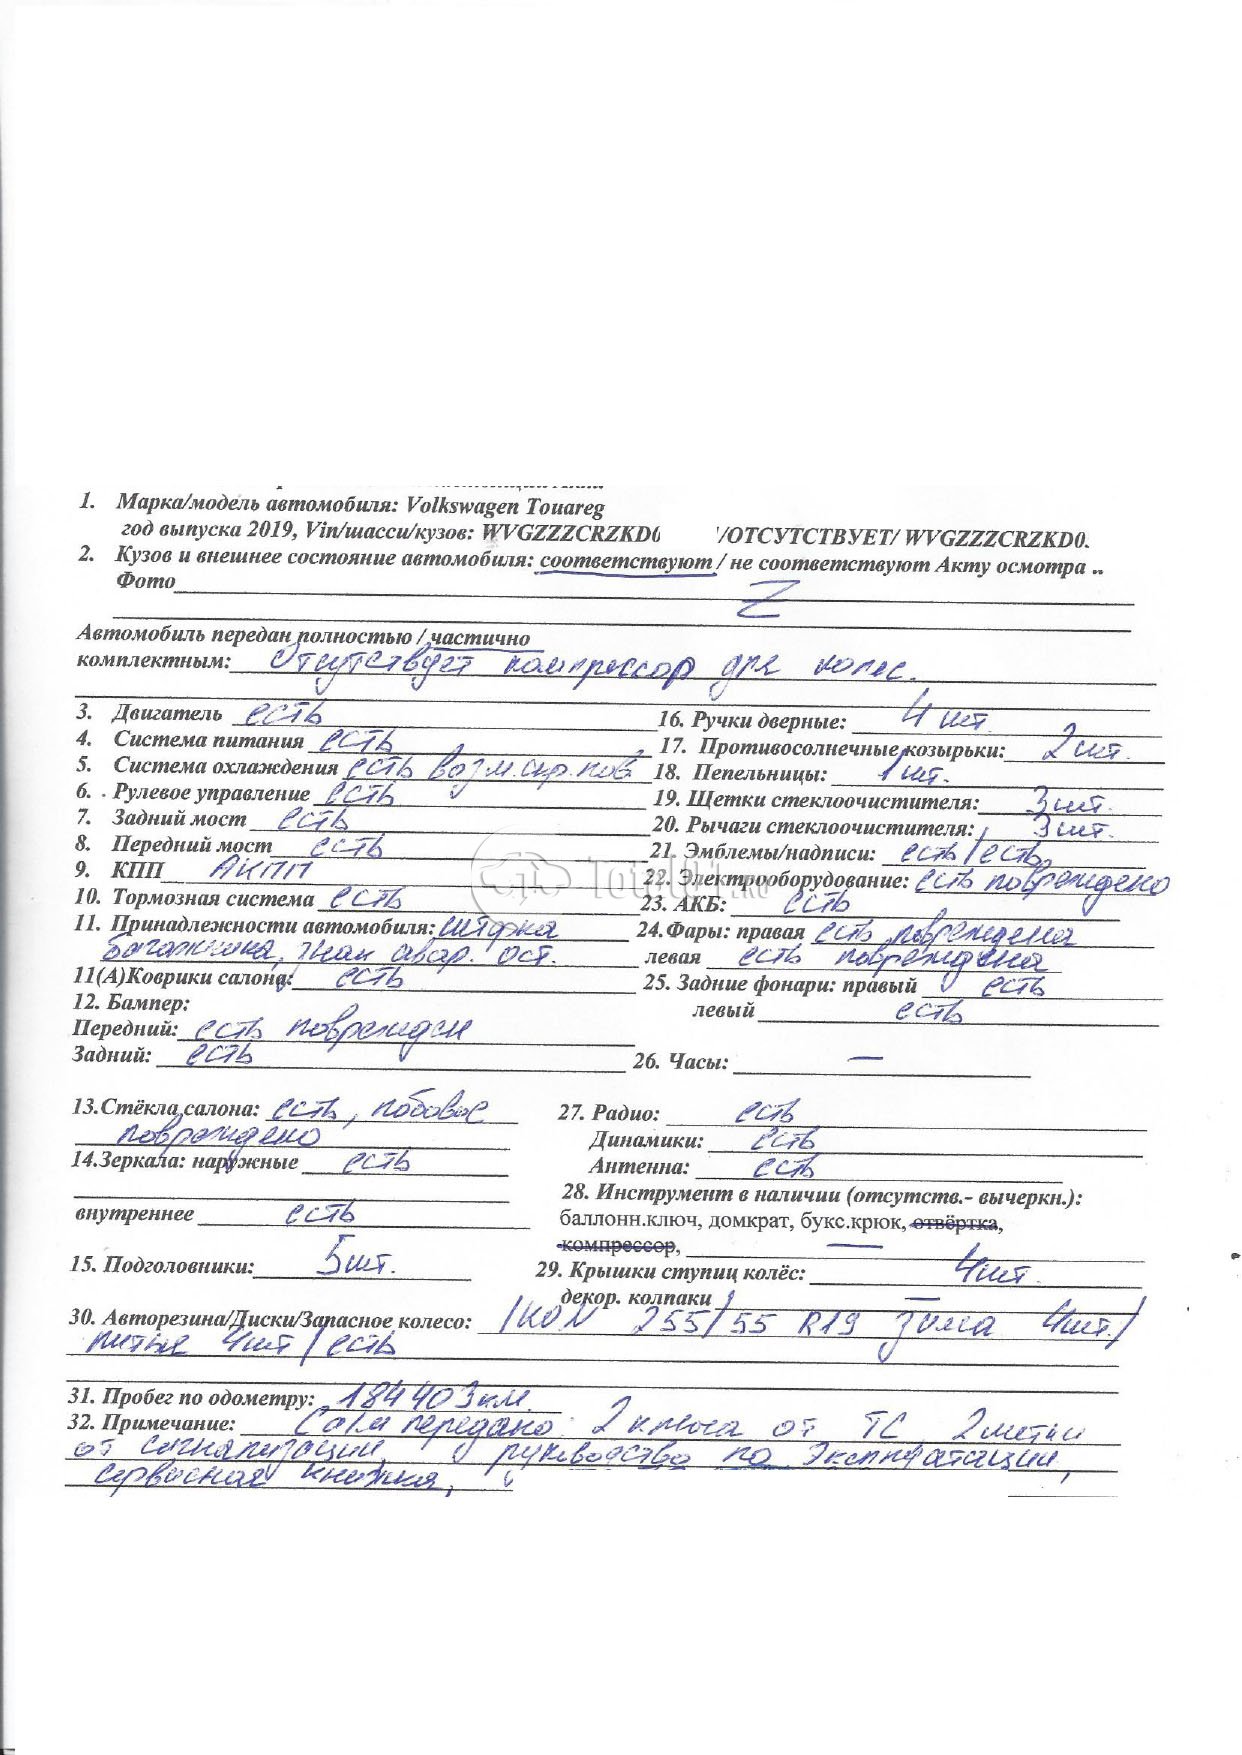 1. Марка/модель автомобиля: Volkswagen Touareg
год выпуска 2019, Vin/шасси/кузов: WVGZZZCRZKD0 /ОТСУТСТВУЕТ/ WVGZZZCRZKD0.
2. Кузов и внешнее состояние автомобиля: соответствуют / не соответствуют Акту осмотра ..
Фото Z
Автомобиль передан полностью / частично
комплектным: Отсутствует компрессор для колес.
3. Двигатель есть
4. Система питания есть
5. Система охлаждения есть возм. скр. пов
6. Рулевое управление есть
7. Задний мост есть
8. Передний мост есть
9. КПП АКПП
10. Тормозная система есть
11. Принадлежности автомобиля: шторка
багажника, знак авар. ост.
11(А)Коврики салона: есть
12. Бампер:
Передний: есть поврежден
Задний: есть
13.Стёкла салона: есть, лобовое
повреждено
14.Зеркала: наружные есть
внутреннее есть
15. Подголовники: 5шт.
16. Ручки дверные: 4 шт
17. Противосолнечные козырьки: 2шт.
18. Пепельницы: 1шт.
19. Щетки стеклоочистителя: 3шт.
20. Рычаги стеклоочистителя: 3шт.
21. Эмблемы/надписи: есть/есть
22. Электрооборудование: есть повреждено
23. АКБ: есть
24.Фары: правая есть повреждена
левая есть повреждена
25. Задние фонари: правый есть
левый есть
26. Часы: —
27. Радио: есть
Динамики: есть
Антенна: есть
28. Инструмент в наличии (отсутств.- вычеркн.):
баллонн.ключ, домкрат, букс.крюк, отвёртка,
компрессор, —
29. Крышки ступиц колёс: 4шт.
декор. колпаки —
30. Авторезина/Диски/Запасное колесо: IKON 255/55 R19 зима 4шт./
литые 4шт / есть
31. Пробег по одометру: 184403км.
32. Примечание: передано 2 ключа от ТС, 2метки
от сигнализации, руководство по эксплуатации,
сервисная книжка,
Total01.RU